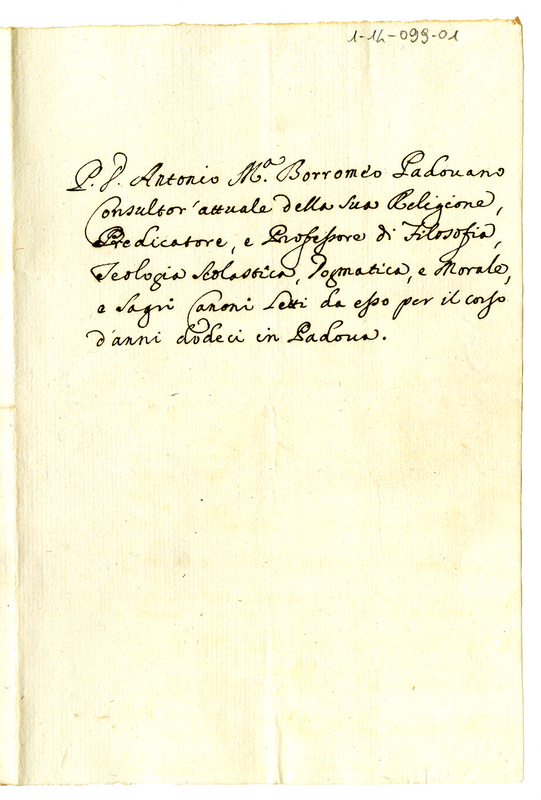 1-14-099-01
P. D. Antonio M.ª Borromeo Padovano
Consultor attuale della sua Religione,
Predicatore, e Professore di Filosofia,
Teologia Scolastica, Dogmatica, e Morale,
e Sagri Canoni Letti da esso per il corso
d'anni dodeci in Padova.